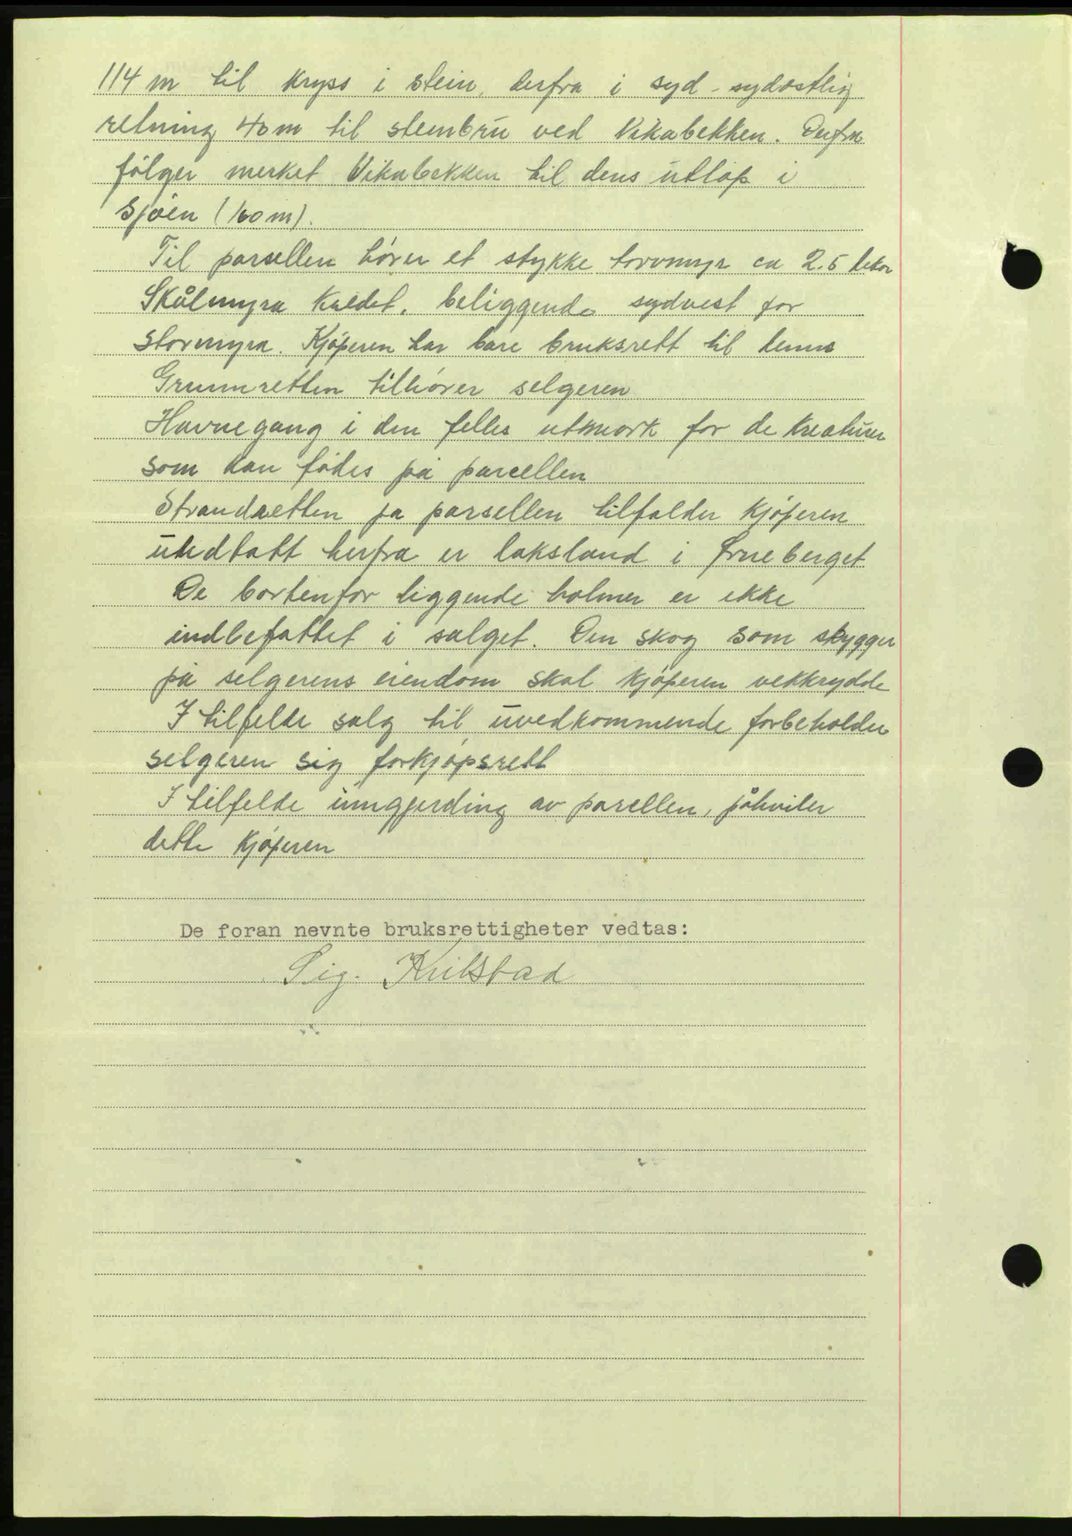 114 m til kryss i stein, derfra i syd-sydøstlig
retning 40 m til steinbru ved Vikabekken. Derfra
følger merket Vikabekken til dens utløp i
Sjøen (160 m).
Til parsellen hører et stykke torvmyr ca 2.5 dekar
Skålmyra kaldet, beliggende sydvest for
Stormyra. Kjøperen har bare bruksrett til denne
Grunnretten tilhører selgeren
Havnegang i den felles utmark for de kreaturer
som kan fødes på parcellen
Strandretten på parsellen tilfalder kjøperen
undtatt herfra er laksland i Ørneberget
De bortenfor liggende holmer er ikke
indbefattet i salget. Den skog som skygger
på selgerens eiendom skal kjøperen vekkrydde
I tilfelde salg til uvedkommende forbeholder
selgeren sig forkjøpsrett
I tilfelde inngjerding av parcellen, påhviler
dette kjøperen
De foran nevnte bruksrettigheter vedtas:
Sig. Kvilstad